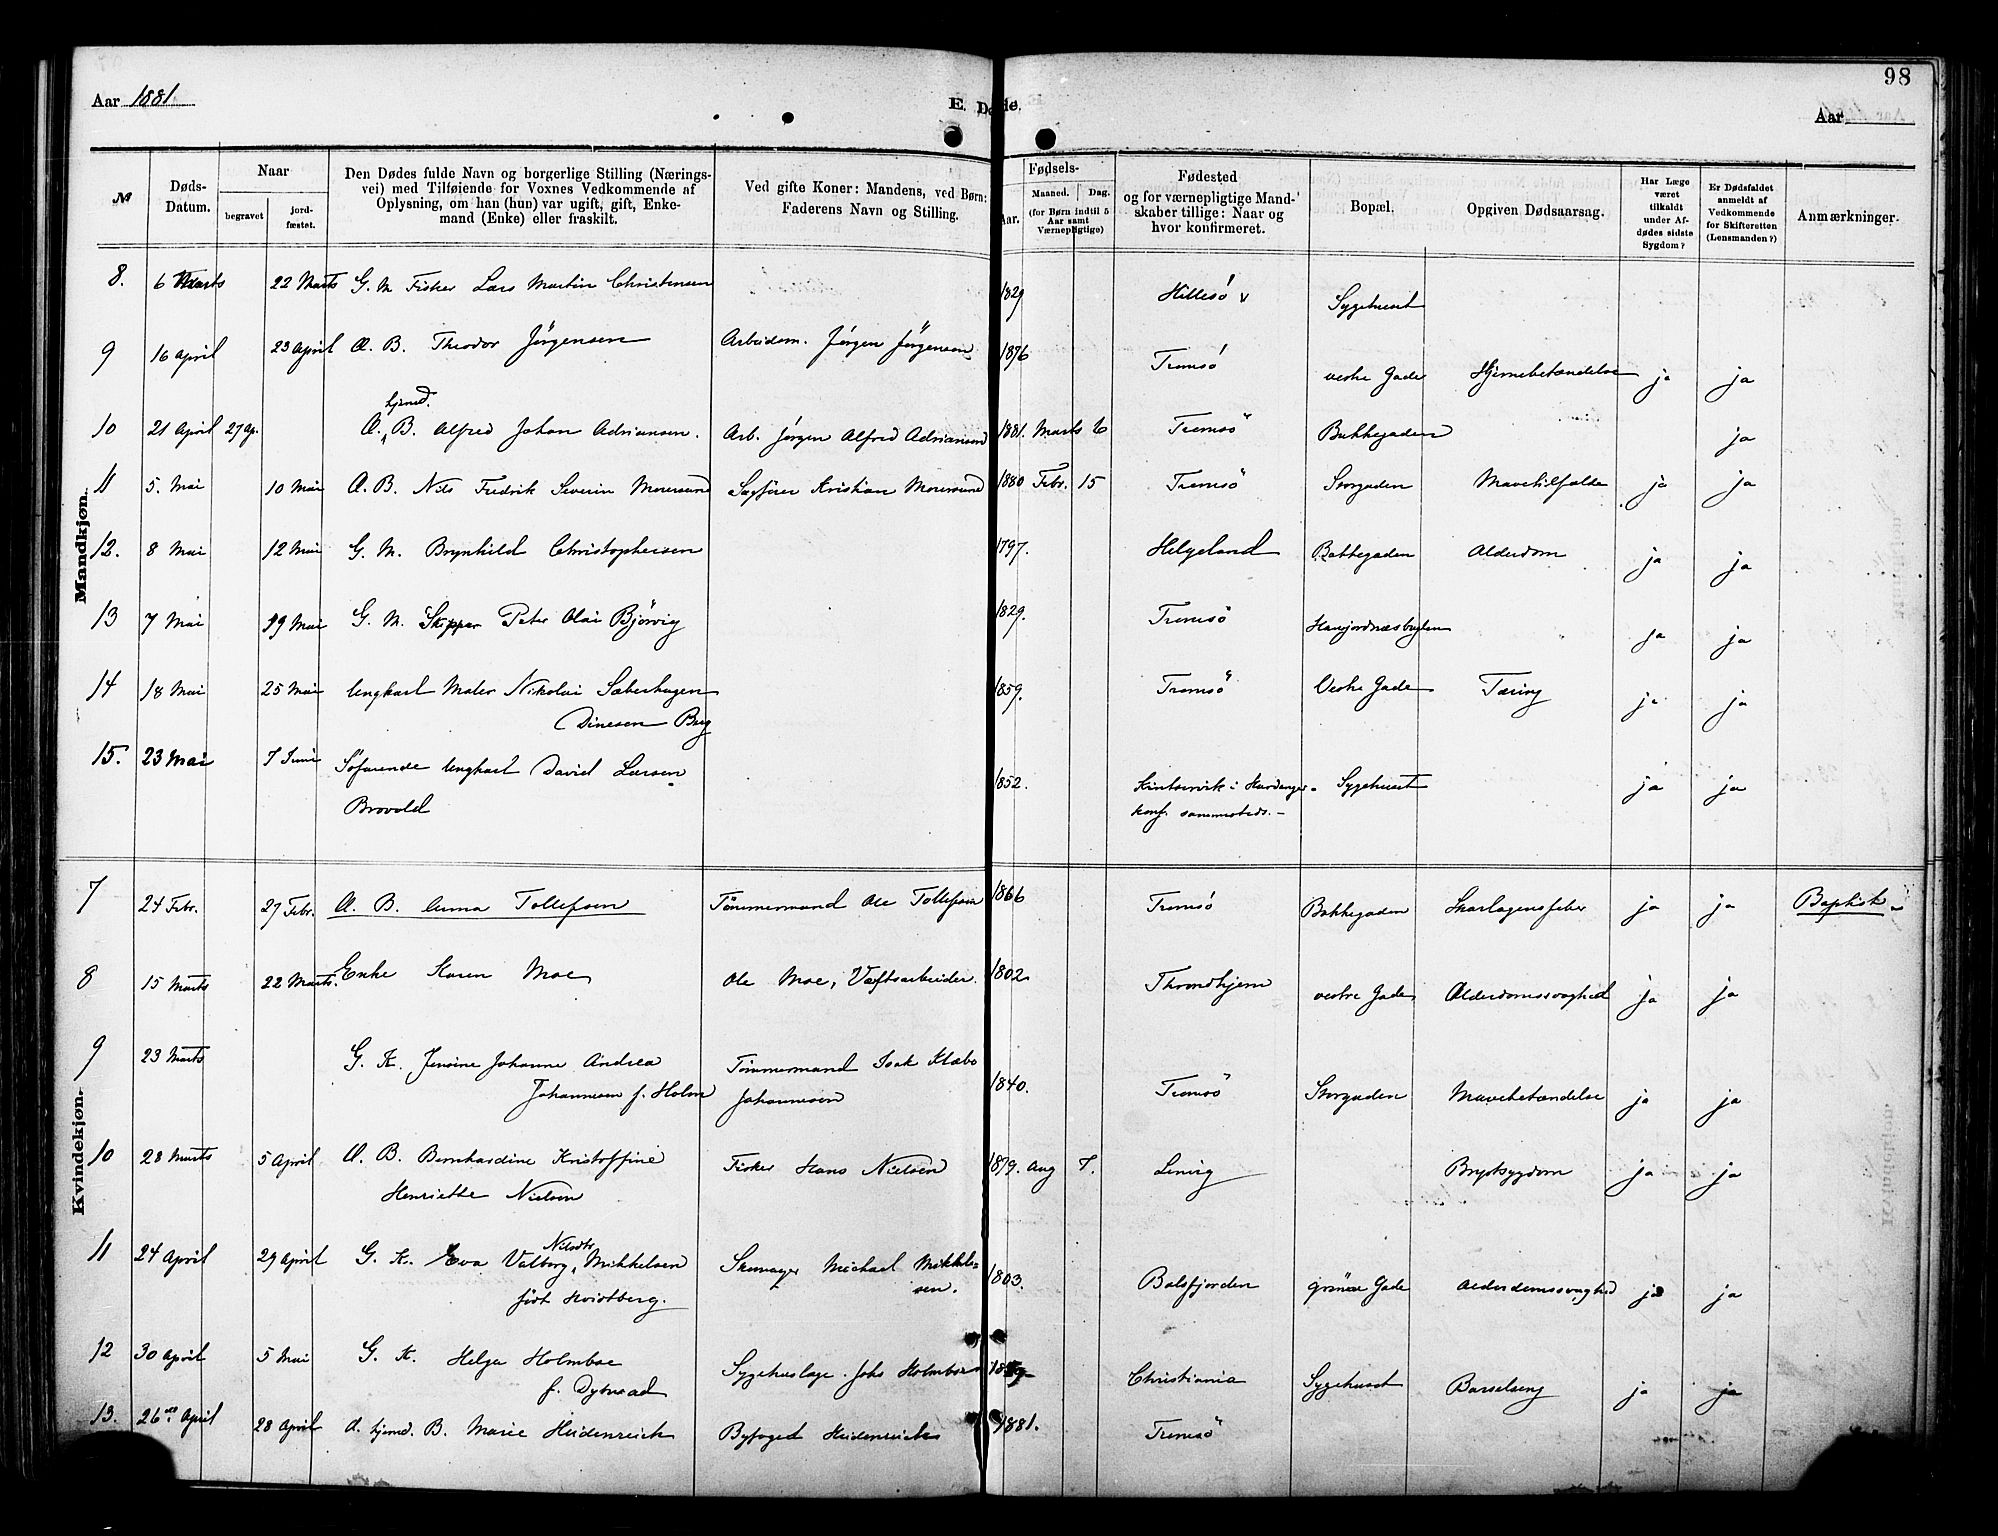 98
Aar 1881.
E. Døde.
Aar
№
Døds-Datum.
Naar
begravet
jord-fæstet.
Den Dødes fulde Navn og borgerlige Stilling (Nærings-
vei) med Tilføiende for Voxnes Vedkommende af
Oplysning, om han (hun) var ugift, gift, Enke-
mand (Enke) eller fraskilt.
Ved gifte Koner: Mandens, ved Børn:
Faderens Navn og Stilling.
Fødsels-
Aar.
Maaned.
Dag.
(for Børn indtil 5
Aar samt
Værnepligtige)
Fødested
og for værnepligtige Mand-
skaber tillige: Naar og
hvor konfirmeret.
Bopæl.
Opgiven Dødsaarsag.
Har Læge
været
tilkaldt
under Af-
dødes sidste
Sygdom?
Er Dødsfaldet
anmeldt af
Vedkommende
for Skifteretten
(Lensmanden?)
Anmærkninger.
Mandkjøn.
8. 6 Marts 22 Marts G. M. Fisker Lars Martin Christensen 1829 Hillesö Sygehuset
9 16 April 23 April Æ. B. Theodor Jörgensen Arbeidsm. Jörgen Jörgensen 1876 Tromsö vestre Gade Hjernebetændelse ja ja
hjemd.
10 21 April 27 Ap. Æ. B. Alfred Johan Adriansen. Arb. Jörgen Alfred Adriansen 1881. Marts 6 Tromsö Bakkegaden ja
11 5. Mai 10 Mai Æ. B. Nils Fredrik Severin Moursund Sagfører Kristian Moursund 1880 Febr. 15 Tromsö Storgaden Mavetilfælde ja ja
12. 8 Mai 12 Mai G. M. Brynhild Christophersen 1797. Helgeland Bakkegaden Alderdom ja ja
13 7 Mai 19 Mai G. M. Skipper Peter Olai Björvig 1829. Tromsö ja ja
14 18 Mai 25 Mai Ungkarl Maler Nikolai Saberhagen 1859. Tromsö Vestre Gade Tæring ja ja
Dinesen Berg
15. 23 Mai 7 Juni Söfarende Ungkarl David Larsen 1852. Kintservik i Hardanger Sygehuset ja ja
Brovold konf. sammesteds.
Kvindekjøn.
7 24 Febr. 27 Febr. Æ. B. Anna Tollefsen Tömmermand Ole Tollefsen 1866 Tromsö Bakkegaden Skarlagensfeber ja ja Baptist
8 15 Marts 22 Marts. Enke Karen Moe Ole Moe, Værftsarbeider. 1802 Throndhjem vestre Gade Alderdomssvaghed ja ja
9 23 Marts G. K. Jensine Johanne Andrea Tömmermand Isak Klæbo 1840. Tromsö Storgaden Mavebetændelse ja ja
Johannesen f. Holm Johannesen
10 28 Marts 5 April Æ. B. Bernhardine Kristoffine Fisker Hans Nielsen 1879. Aug 7. Lenvig Brystsygdom ja ja
Henriette Nielsen
Nilsdtr
11 24 April 29 April G. K. Eva Valborg Mikkelsen Skomager Michael Mikkel- 1803. Balsfjorden grönne Gade Alderdomssvaghed ja ja
född Kvistberg. sen.
12 30 April 5 Mai G. K. Helga Holmboe Sygehuslæge Johs Holmboe Christiania Sygehuset Barselseng ja ja
f. Dybvad
13. 26 April 28 April Æ. hjemd. B. Marie Heidenreich Byfoged Heidenreich 1881. Tromsö